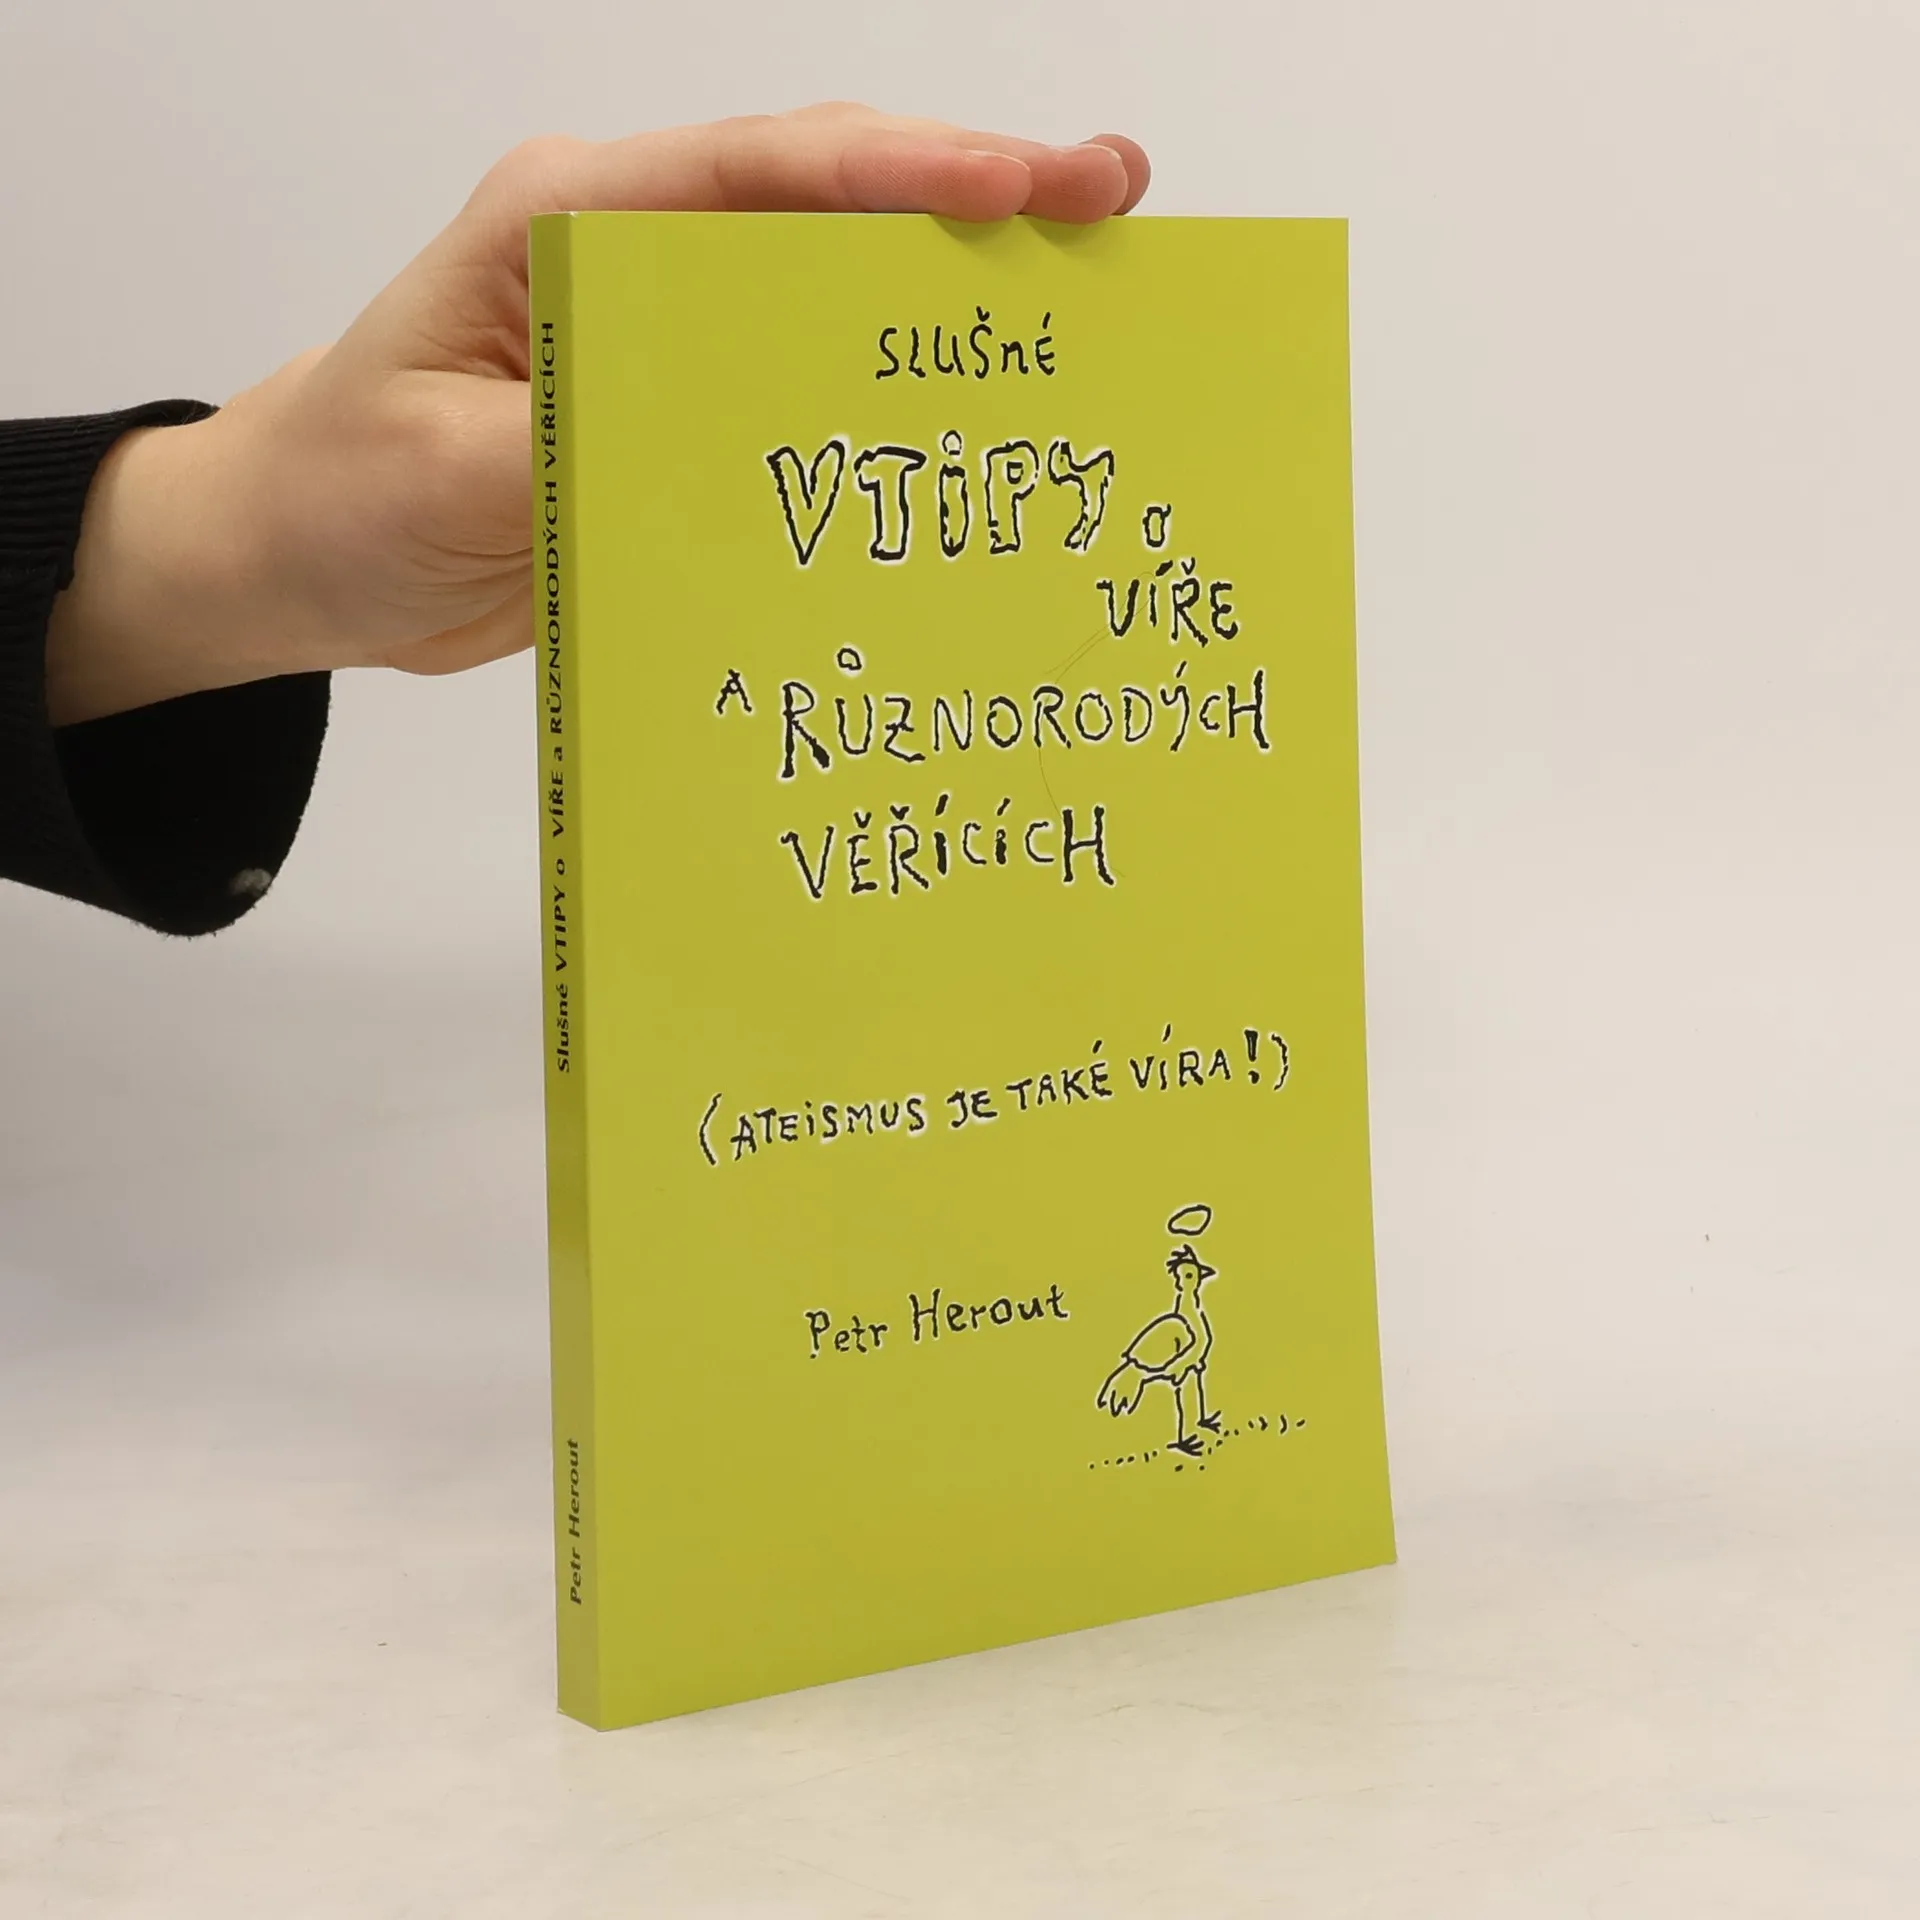 SLUŠNÉ
VTiPY o
VÍŘE
A RŮZNORODÝCH
VĚŘÍCÍCH
(ATEiSMUS JE TAKÉ VÍRA!)
Petr Herout
Slušné VTIPY o VÍŘE a RŮZNORODÝCH VĚŘÍCÍCH
Petr Herout